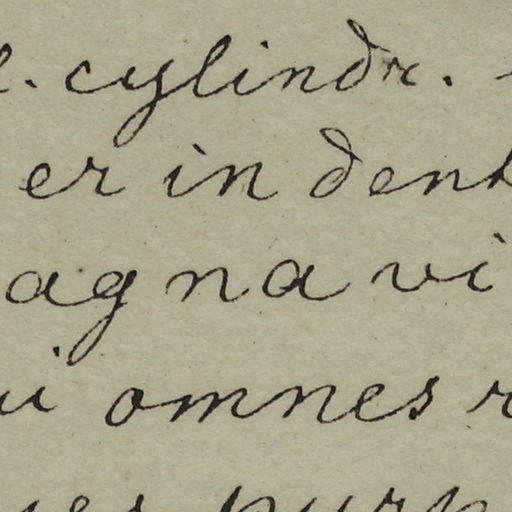 . cylindr.
er in dent
agna vi
ui omnes r
purp